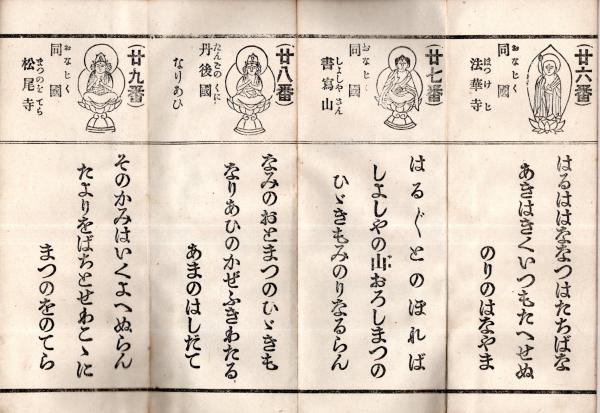 廿六番
同國
おなじく
法華寺
ほつけじ
はるははななつはたちばな
あきはきくいつもたへせぬ
のりのはなやま
廿七番
同國
おなじく
書寫山
しよしやさん
はる〲とのぼれば
しよしやの山おろしまつの
ひゞきもみのりなるらん
廿八番
丹後國
たんごのくに
なりあひ
なみのおとまつのひゞきも
なりあひのかぜふきわたる
あまのはしたて
廿九番
同國
おなじく
松尾寺
まつのをてら
そのかみはいくよへぬらん
たよりをばちとせわこゝに
まつのをのてら